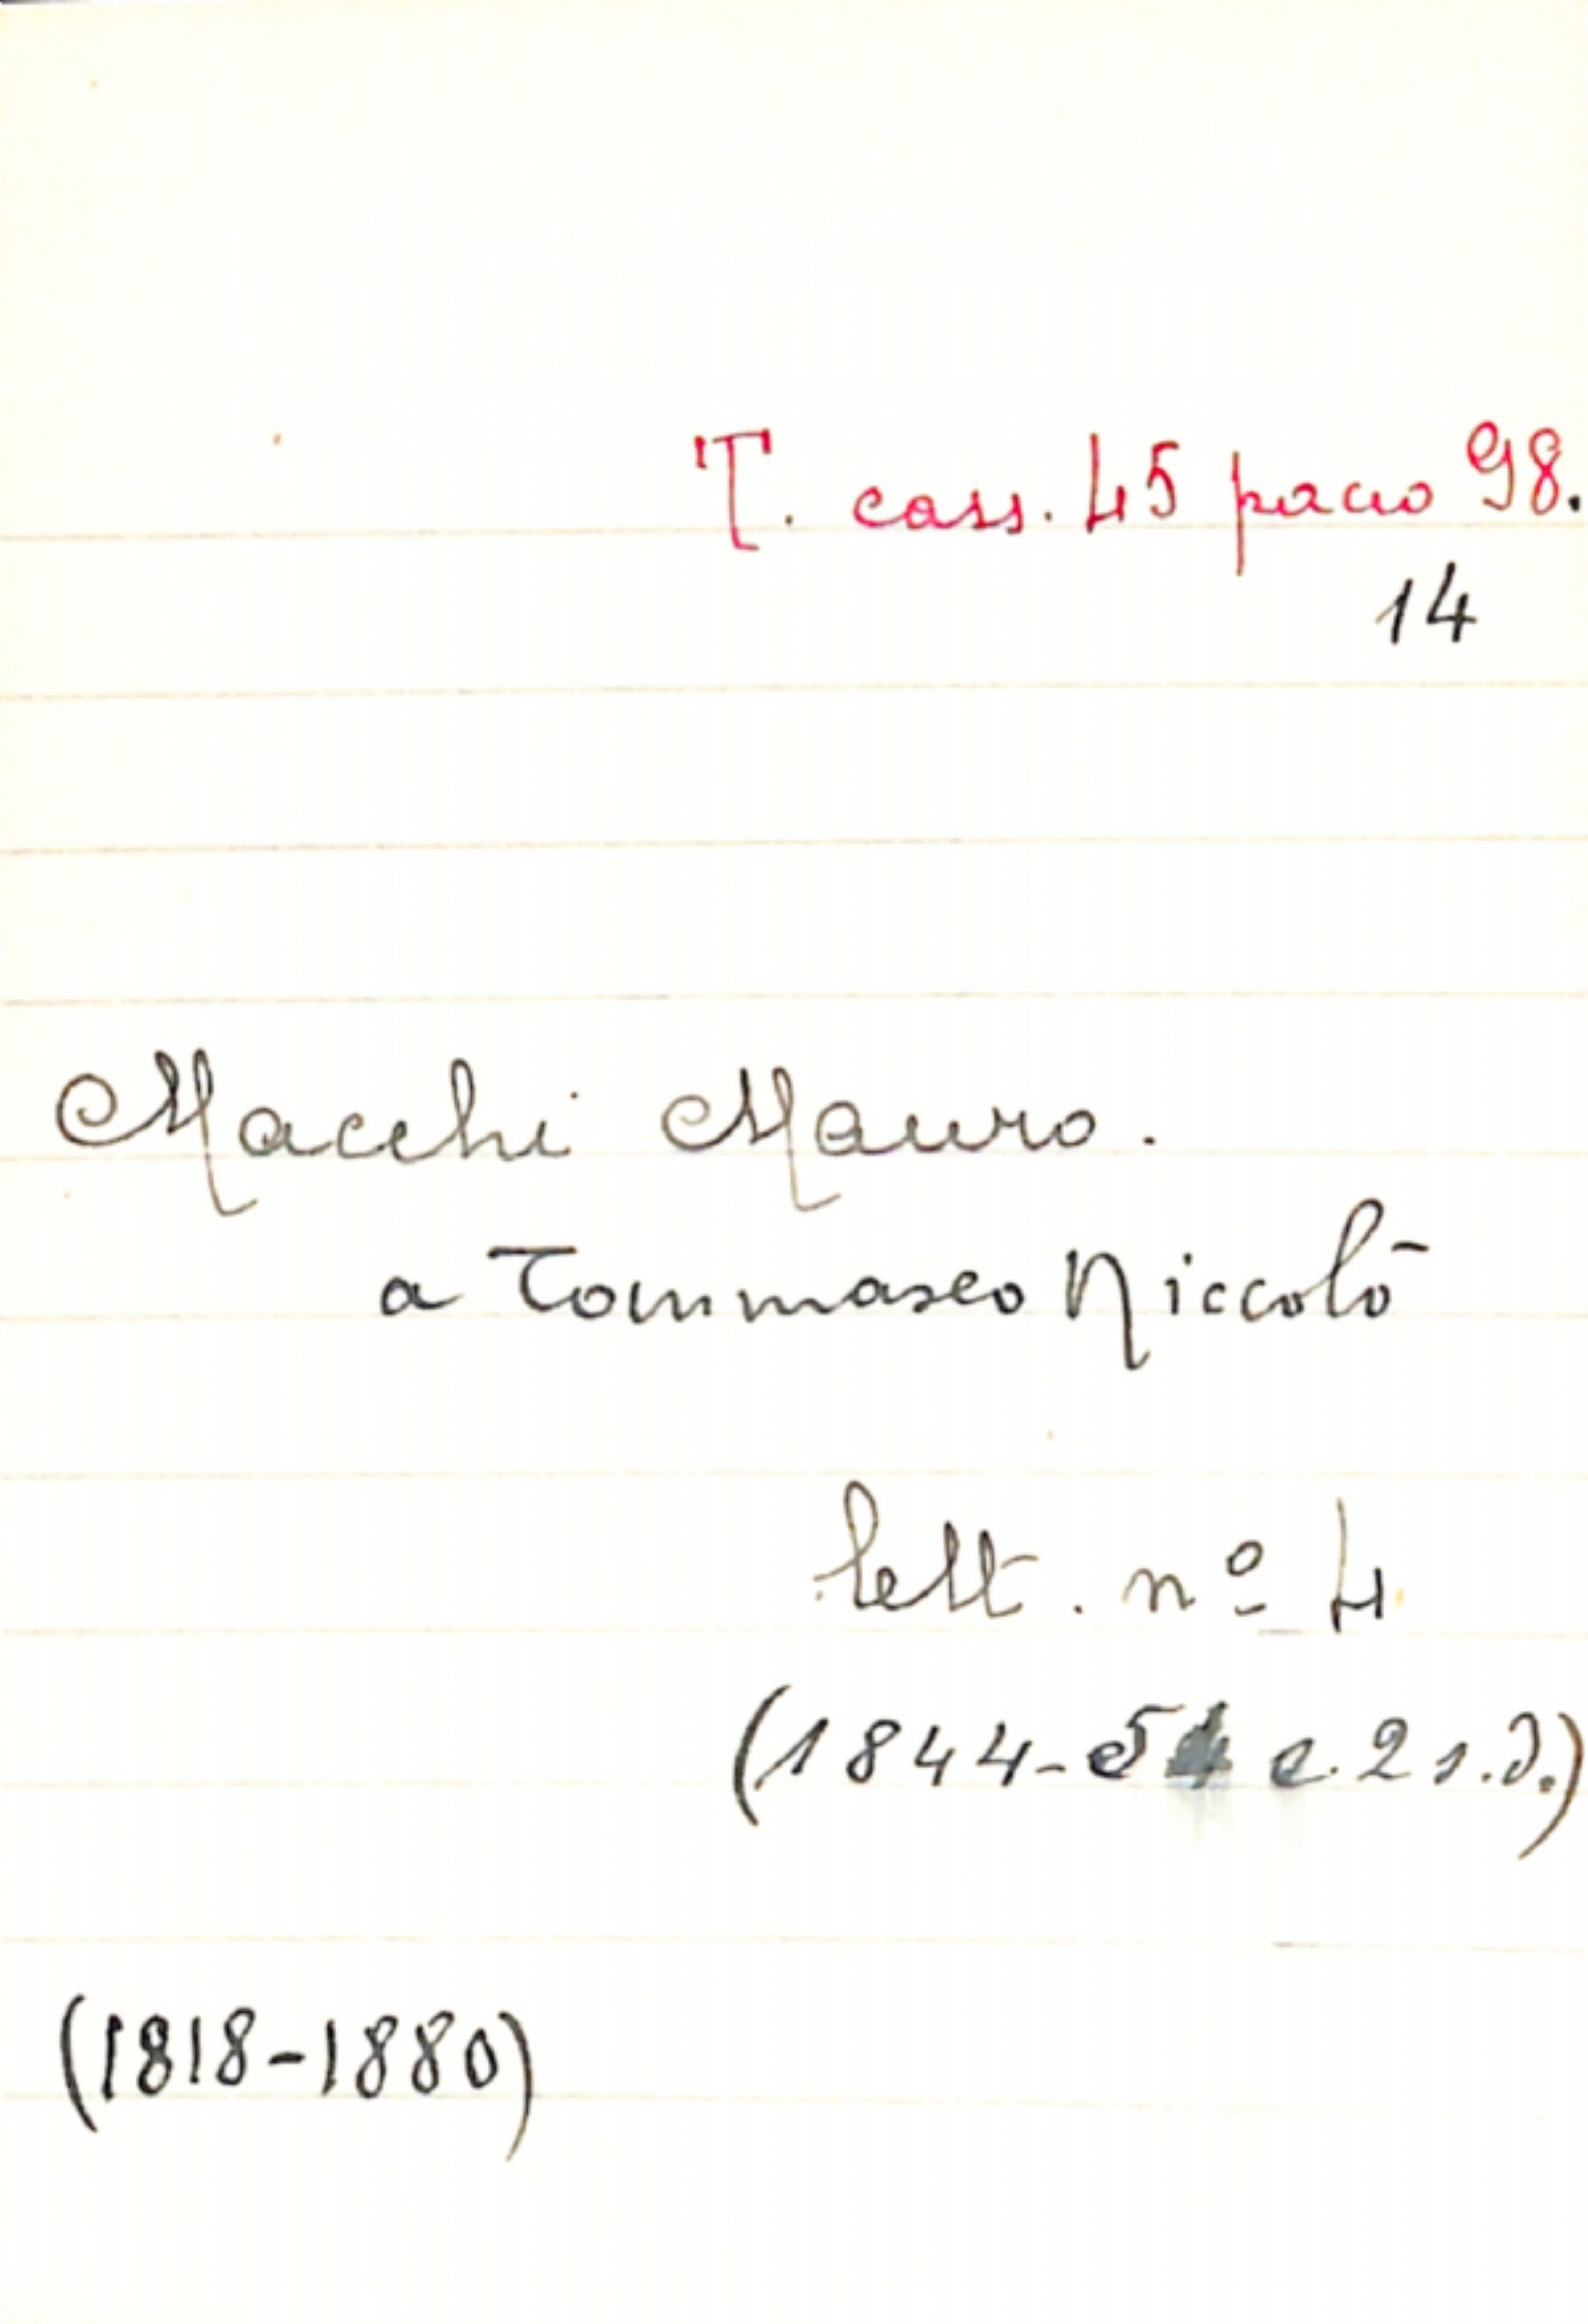 T. cass. 45 pacco 98.
14
Macchi Mauro.
a Tommaseo Niccolò
lett. nº 4
(1844-54 e. 2 s.d.)
(1818-1880)